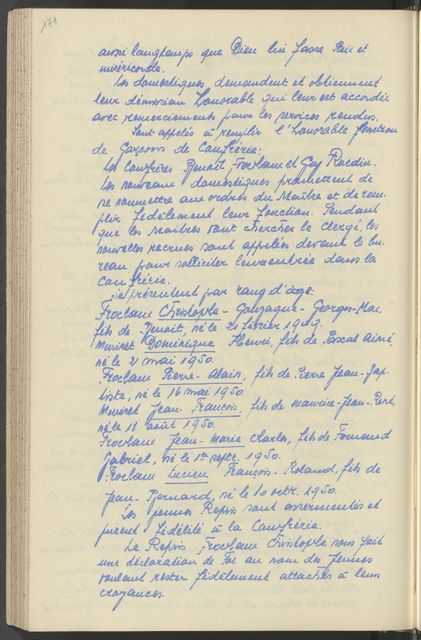 171
aussi longtemps que Dieu lui fasse Paix et
miséricorde.
Les domestiques demandent et obtiennent
leur démission Honorable qui leur est accordée
avec remerciements pour les services rendus.
Sont appelés à remplir l'honorable fonction
de Garçons de Confrérie:
Les Confrères Benoit Froclaux et Guy Ruedin.
Les nouveaux domestiques promettent de
se soumettre aux ordres du Maître et de rem-
plir fidèlement leurs fonction. Pendant
que les Maîtres vont chercher le clergé, les
nouvelles recrues sont appelées devant le bu-
reau pour solliciter leur entrée dans la
Confrérie.
se présentent par rang d'âge:
Froclaux Christophe - Gonzague - Georges-Max.
fils de Benoit, né le 21 février 1949.
Muriset Dominique Henri, fils de Pascal Aimé,
né le 21 mai 1950.
Froclaux Pierre-Alain, fils de Pierre Jean-Bap-
tiste, né le 16 mai 1950.
Muriset Jean-François, fils de Maurice-Jean-
né le 18 août 1950.
Froclaux Jean-Marie Charles, fils de Fernand
Gabriel, né le 1er septr. 1950.
Froclaux Lucien François-Roland, fils de
Jean-Bernard, né le 10 octr. 1950.
Les jeunes Repris sont assermentés et
jurent fidélité à la Confrérie.
Le Repris Froclaux Christophe nous fait
une déclaration de Foi au nom des Jeunes
voulant rester fidèlement attachés à leurs
croyances.